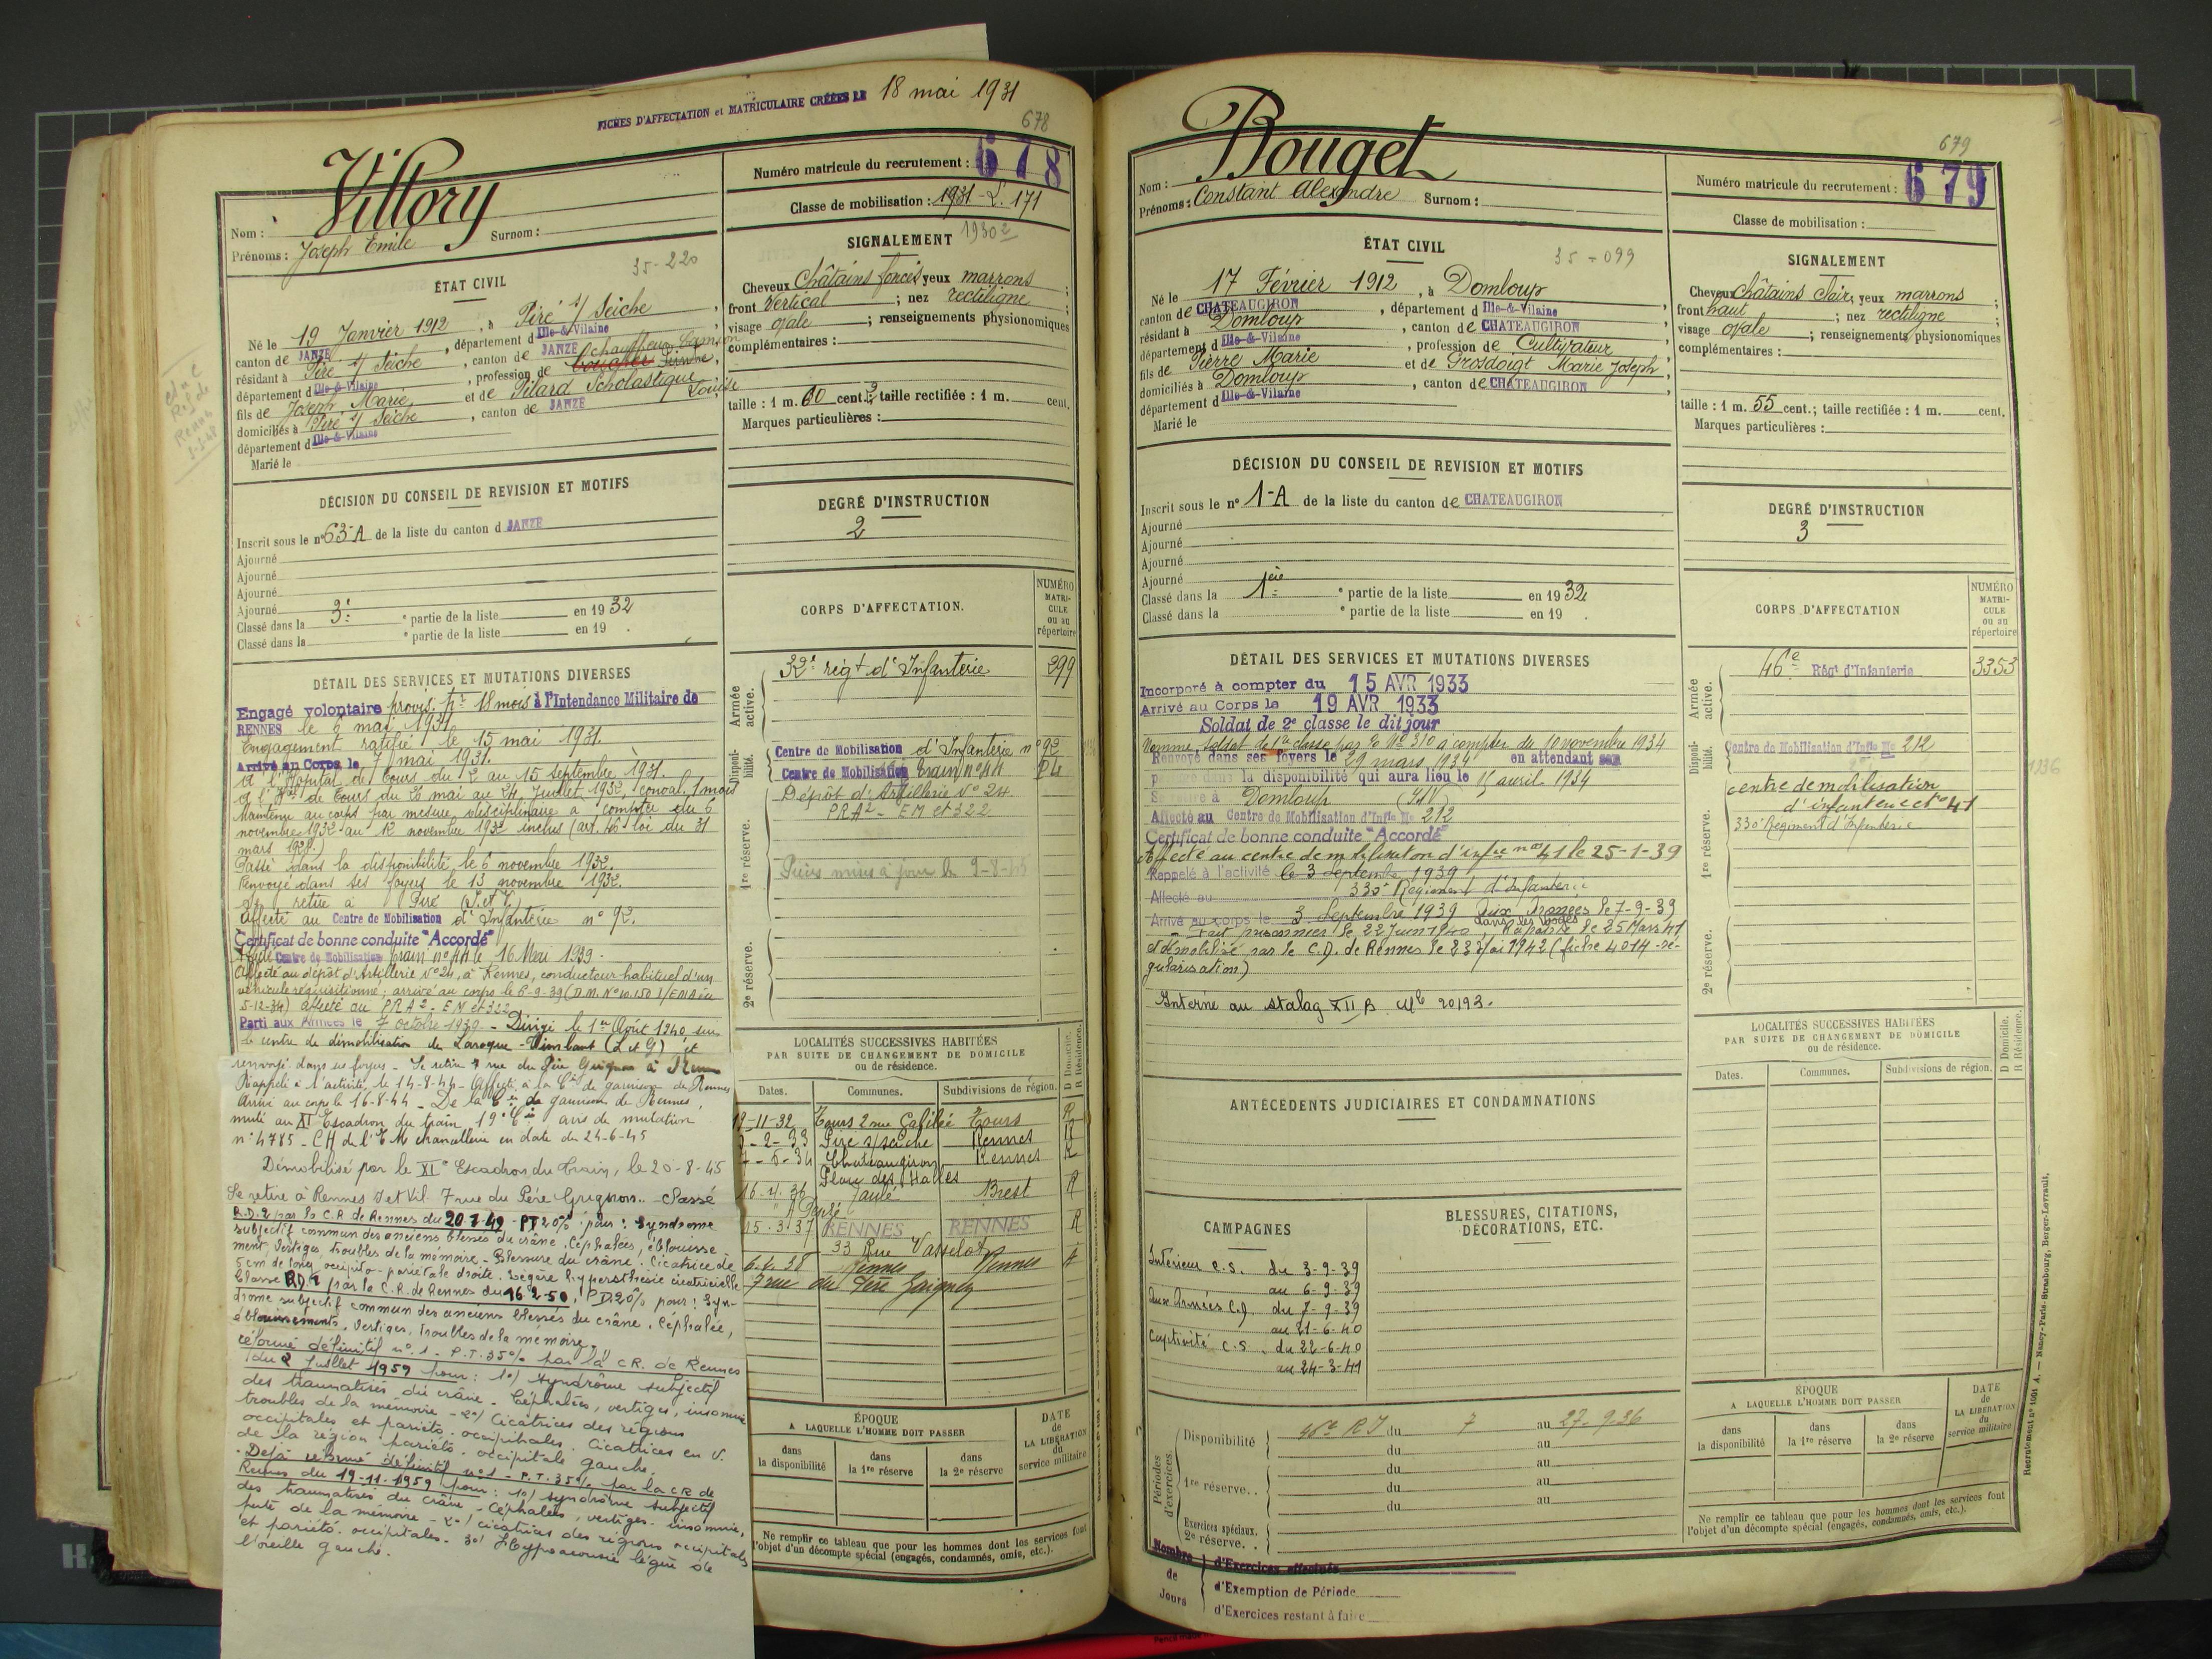 FICHES D'AFFECTATION et MATRICULAIRE CRÉÉES LE 18 mai 1931
678
Villory
Nom :
Prénoms : Joseph Emile Surnom :
Numéro matricule du recrutement : 678
Classe de mobilisation : 1931 - 2. 171
1930 2
35-220
ÉTAT CIVIL
Né le 19 Janvier 1912, à Piré s/ Seiche,
canton de JANZÉ, département d Ille-&-Vilaine
résidant à Piré s/ Seiche, canton de JANZÉ
département d Ille-&-Vilaine, profession de chauffeur Camion
fils de Joseph Marie et de Pilard Scholastique Louise
domiciliés à Piré s/ Seiche, canton de JANZÉ
département d Ille-&-Vilaine
Marié le
SIGNALEMENT
Cheveux Châtains foncés yeux marrons ;
front Vertical ; nez rectiligne ;
visage ovale ; renseignements physionomiques
complémentaires :
taille : 1 m. 60 cent. ; taille rectifiée : 1 m. cent.
Marques particulières :
DÉCISION DU CONSEIL DE REVISION ET MOTIFS
Inscrit sous le n° 63-A de la liste du canton d JANZÉ
Ajourné
Ajourné
Ajourné
Ajourné
Classé dans la 3e partie de la liste en 1932
Classé dans la e partie de la liste en 19 .
DEGRÉ D'INSTRUCTION
2
DÉTAIL DES SERVICES ET MUTATIONS DIVERSES
Engagé volontaire provis. pr 18 mois à l'Intendance Militaire de
RENNES le 6 mai 1931.
Engagement ratifié le 15 mai 1931.
Arrivé au Corps le 7 mai 1931.
A l'Hôpital de Tours du 2 au 15 septembre 1931.
A l' de Tours du 26 mai au 24 Juillet 1932, conval. 1 mois
Maintenu au corps par mesure disciplinaire à compter du 6
novembre 1932 au 12 novembre 1932 inclus (art. 46 loi du 31
mars 1928.)
Passé dans la disponibilité le 6 novembre 1932.
Renvoyé dans ses foyers le 13 novembre 1932.
Se retire à Piré (I. et V.)
Affecté au Centre de Mobilisation d'Infanterie n° 92.
Certificat de bonne conduite "Accordé"
Affecté Centre de Mobilisation train n° 44 le 16 Mai 1939.
Affecté au dépôt d'Artillerie N° 24, à Rennes, conducteur habituel d'un
véhicule réquisitionné ; arrivé au corps le 6-9-39 (D.M. N° 10.150 I/EMA du
5-12-34) affecté au PRA2 - EM et 322
Parti aux Armées le 7 octobre 1939 - Dirigé le 1er Août 1940 sur
le centre de démobilisation de Laroque-Timbaut (L et G) et
renvoyé dans ses foyers - Se retire 7 rue du Père Grignon à Rennes
Rappelé à l'activité le 14-8-44 - Affecté à la Cie de garnison de Rennes
Arrivé au corps le 16-8-44 - De la Cie de garnison de Rennes,
muté au XI Escadron du train 19e Cie avis de mutation
n° 4785 - CH de l'E M chancellerie en date du 24-6-45
Démobilisé par le XIe Escadron du Train, le 20-8-45
Se retire à Rennes I et Vil. 7 rue du Père Grignon.. Classé
R.D.2 par la C.R. de Rennes du 20-7-49 - PT 20% pour : Syndrome
subjectif commun des anciens blessés du crâne. Céphalées, éblouisse
ment, Vertiges, troubles de la mémoire - Blessure du crâne. Cicatrice de
5 cm de long occipito-pariétale droite. Légère hyperesthésie cicatricielle
Classé R.D.1 par la C.R. de Rennes du 16-2-50, PD 20% pour : Syn-
drome subjectif commun des anciens blessés du crâne. Céphalée,
éblouissements, Vertiges, troubles de la mémoire.
réformé définitif n° 1 - P.T. 35% par la CR. de Rennes
du 2 Juillet 1959 pour : 1°/ Syndrôme subjectif
des traumatisés du crâne - Céphalées, vertiges, insomnie
troubles de la mémoire - 2°/ Cicatrices des régions
occipitales et pariéto-occipitales. Cicatrices en V.
de la région pariéto-occipitale gauche.
. Déjà réformé définitif n° 1 - P.T. 35% par la CR de
Rennes du 19-11-1959 pour : 1°/ syndrôme subjectif
des traumatisés du crâne - Céphalées, vertiges - insomnie,
perte de la mémoire - 2°/ cicatrices des régions occipitales
et pariéto-occipitales. 3°/ Hypoacousie légère de
l'oreille gauche.
CORPS D'AFFECTATION.
NUMÉRO MATRI-CULE ou au répertoire
Armée active.
32e régt d'Infanterie 299
Disponi-bilité.
Centre de Mobilisation d'Infanterie n° 92
Centre de Mobilisation train n° 44
Dépôt d'Artillerie N° 24
PRA2 - EM et 322
1re réserve.
2e réserve.
LOCALITÉS SUCCESSIVES HABITÉES
PAR SUITE DE CHANGEMENT DE DOMICILE
ou de résidence.
D Domicile. R Résidence.
Dates. Communes. Subdivisions de région.
19-11-32 Tours 2 rue Galilée Tours R
9-2-33 Piré s/ seiche Rennes R
7-5-34 Chateaugiron Rennes R
Place des Halles
16-4-36 Taulé Brest R
15-3-37 RENNES RENNES R
33 Rue Vasselot
6-1-38 Rennes Rennes
7 rue du Père Grignon
ÉPOQUE
A LAQUELLE L'HOMME DOIT PASSER
dans la disponibilité
dans la 1re réserve
dans la 2e réserve
DATE de LA LIBÉRATION du service militaire
Ne remplir ce tableau que pour les hommes dont les services font
l'objet d'un décompte spécial (engagés, condamnés, omis, etc.).
679
Bouget
Nom :
Prénoms : Constant Alexandre Surnom :
Numéro matricule du recrutement : 679
Classe de mobilisation :
ÉTAT CIVIL
35-099
Né le 17 Février 1912, à Domloup
canton de CHATEAUGIRON, département d Ille-&-Vilaine,
résidant à Domloup, canton de CHATEAUGIRON
département d Ille-&-Vilaine, profession de Cultivateur
fils de Pierre Marie et de Grosdoigt Marie Joseph,
domiciliés à Domloup, canton de CHATEAUGIRON
département d Ille-&-Vilaine
Marié le
SIGNALEMENT
Cheveux Châtains clairs, yeux marrons ;
front haut ; nez rectiligne ;
visage ovale ; renseignements physionomiques
complémentaires :
taille : 1 m. 55 cent. ; taille rectifiée : 1 m. cent.
Marques particulières :
DÉCISION DU CONSEIL DE REVISION ET MOTIFS
Inscrit sous le n° 1-A de la liste du canton de CHATEAUGIRON
Ajourné
Ajourné
Ajourné
Ajourné
Classé dans la 1ère e partie de la liste en 1932
Classé dans la e partie de la liste en 19 .
DEGRÉ D'INSTRUCTION
3
DÉTAIL DES SERVICES ET MUTATIONS DIVERSES
Incorporé à compter du 15 AVR 1933
Arrivé au Corps le 19 AVR 1933
Soldat de 2e classe le dit jour
Nommé soldat de 1re classe par O N° 310 à compter du 10 novembre 1934
Renvoyé dans ses foyers le 29 mars 1934 en attendant son
passage dans la disponibilité qui aura lieu le 15 avril 1934
Se retire à Domloup (I&V)
Affecté au Centre de Mobilisation d'Infie No 212
Certificat de bonne conduite "Accordé"
Affecté au centre de mobilisation d'infie n° 41 le 25-1-39
Rappelé à l'activité le 3 septembre 1939
Affecté au 330e Régiment d'Infanterie
Arrivé au corps le 3 Septembre 1939 Aux Armées le 7-9-39
Fait prisonnier le 22 Juin 1940 dans les Vosges, Rapatrié le 25 Mars 41
démobilisé par le C.D. de Rennes le 23 Mai 1942 (fiche 4014 - ré-
gularisation)
Interné au stalag XII B Mle 20193.
CORPS D'AFFECTATION
NUMÉRO MATRI-CULE ou au répertoire
Armée active.
46e Régt d'Infanterie 3353
Disponi-bilité.
Centre de Mobilisation d'Infie No 212
centre de mobilisation
d'infanterie n° 41
330e Régiment d'Infanterie
1re réserve.
2e réserve.
ANTÉCÉDENTS JUDICIAIRES ET CONDAMNATIONS
LOCALITÉS SUCCESSIVES HABITÉES
PAR SUITE DE CHANGEMENT DE DOMICILE
ou de résidence.
D Domicile. R Résidence.
Dates. Communes. Subdivisions de région.
CAMPAGNES
Intérieur C.S. du 3-9-39
au 6-9-39
Aux Armées C.D. du 7-9-39
au 21-6-40
Captivité C.S. du 22-6-40
au 24-3-41
BLESSURES, CITATIONS,
DÉCORATIONS, ETC.
Périodes d'exercices.
Disponibilité 46e RI du 7 au 27-9-36
du au
1re réserve. . du au
du au
du au
Exercices spéciaux.
2e réserve. .
ÉPOQUE
A LAQUELLE L'HOMME DOIT PASSER
dans la disponibilité
dans la 1re réserve
dans la 2e réserve
DATE de LA LIBÉRATION du service militaire
Ne remplir ce tableau que pour les hommes dont les services font
l'objet d'un décompte spécial (engagés, condamnés, omis, etc.).
Nombre de Jours
d'Exercices effectués
d'Exemption de Période
d'Exercices restant à faire
Recrutement n° 1001 A. — Nancy-Paris-Strasbourg, Berger-Levrault.